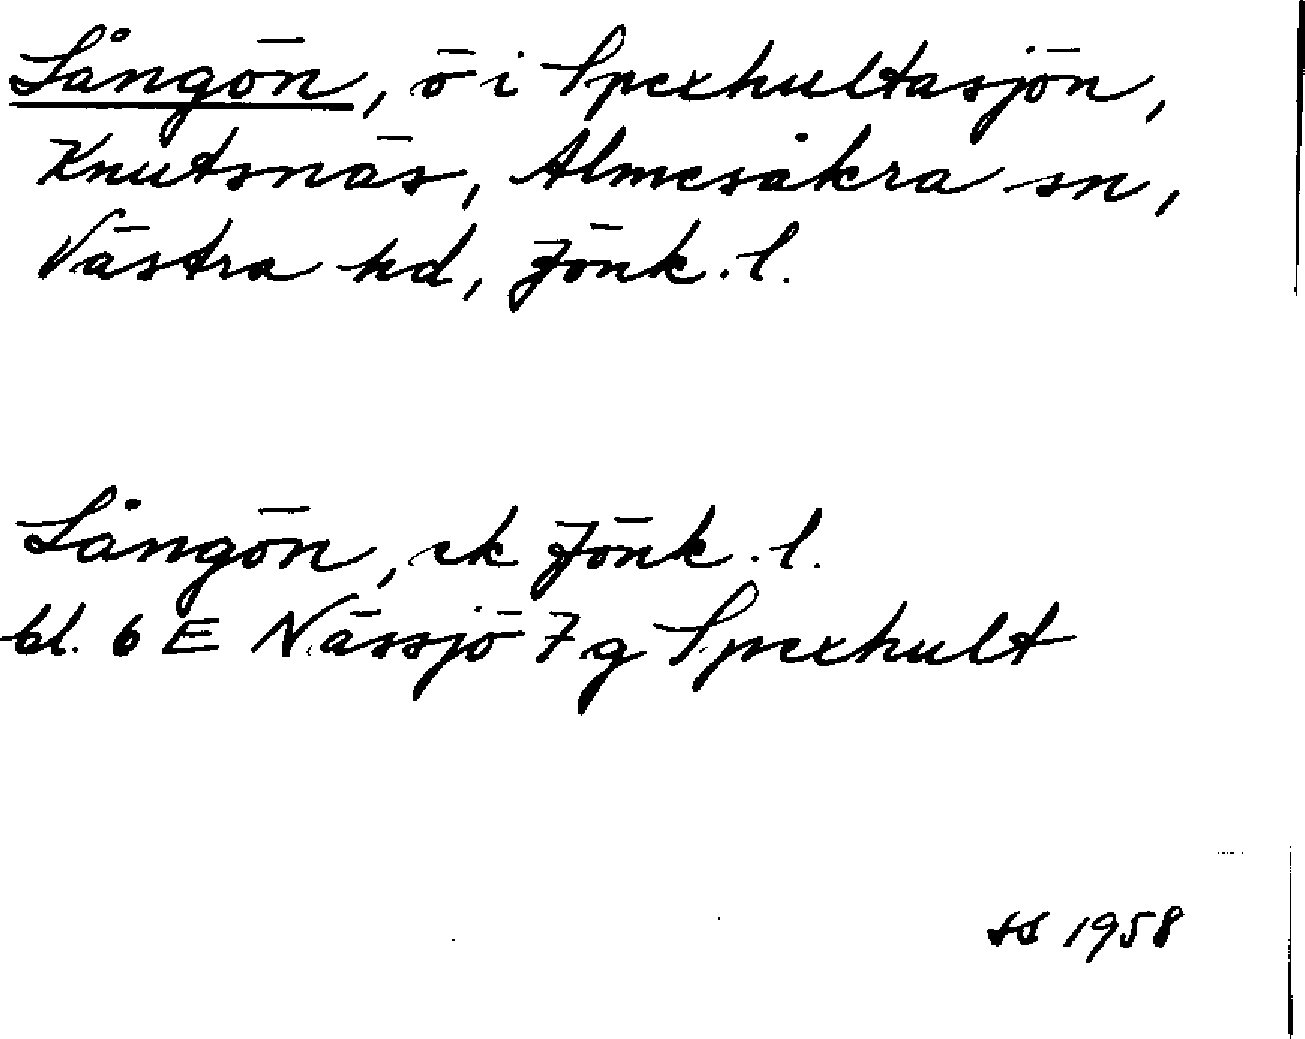 Långön, ö i Spexhultasjön,
Knutsnäs, Almesåkra sn,
Västra hd, Jönk. l.
Långön, ek Jönk. l.
bl. 6 E Nässjö 7 g Spexhult
SS 1958